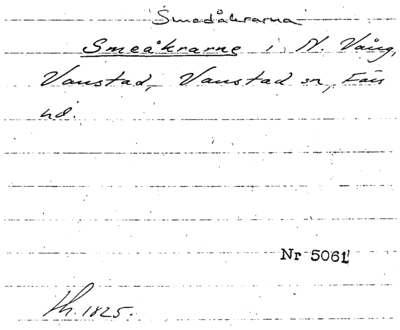 Smedåkrarna
Smeåkrarne i N. Vång,
Vanstad, Vanstad sn, Färs
hd.
Nr 5061
Lh. 1825.